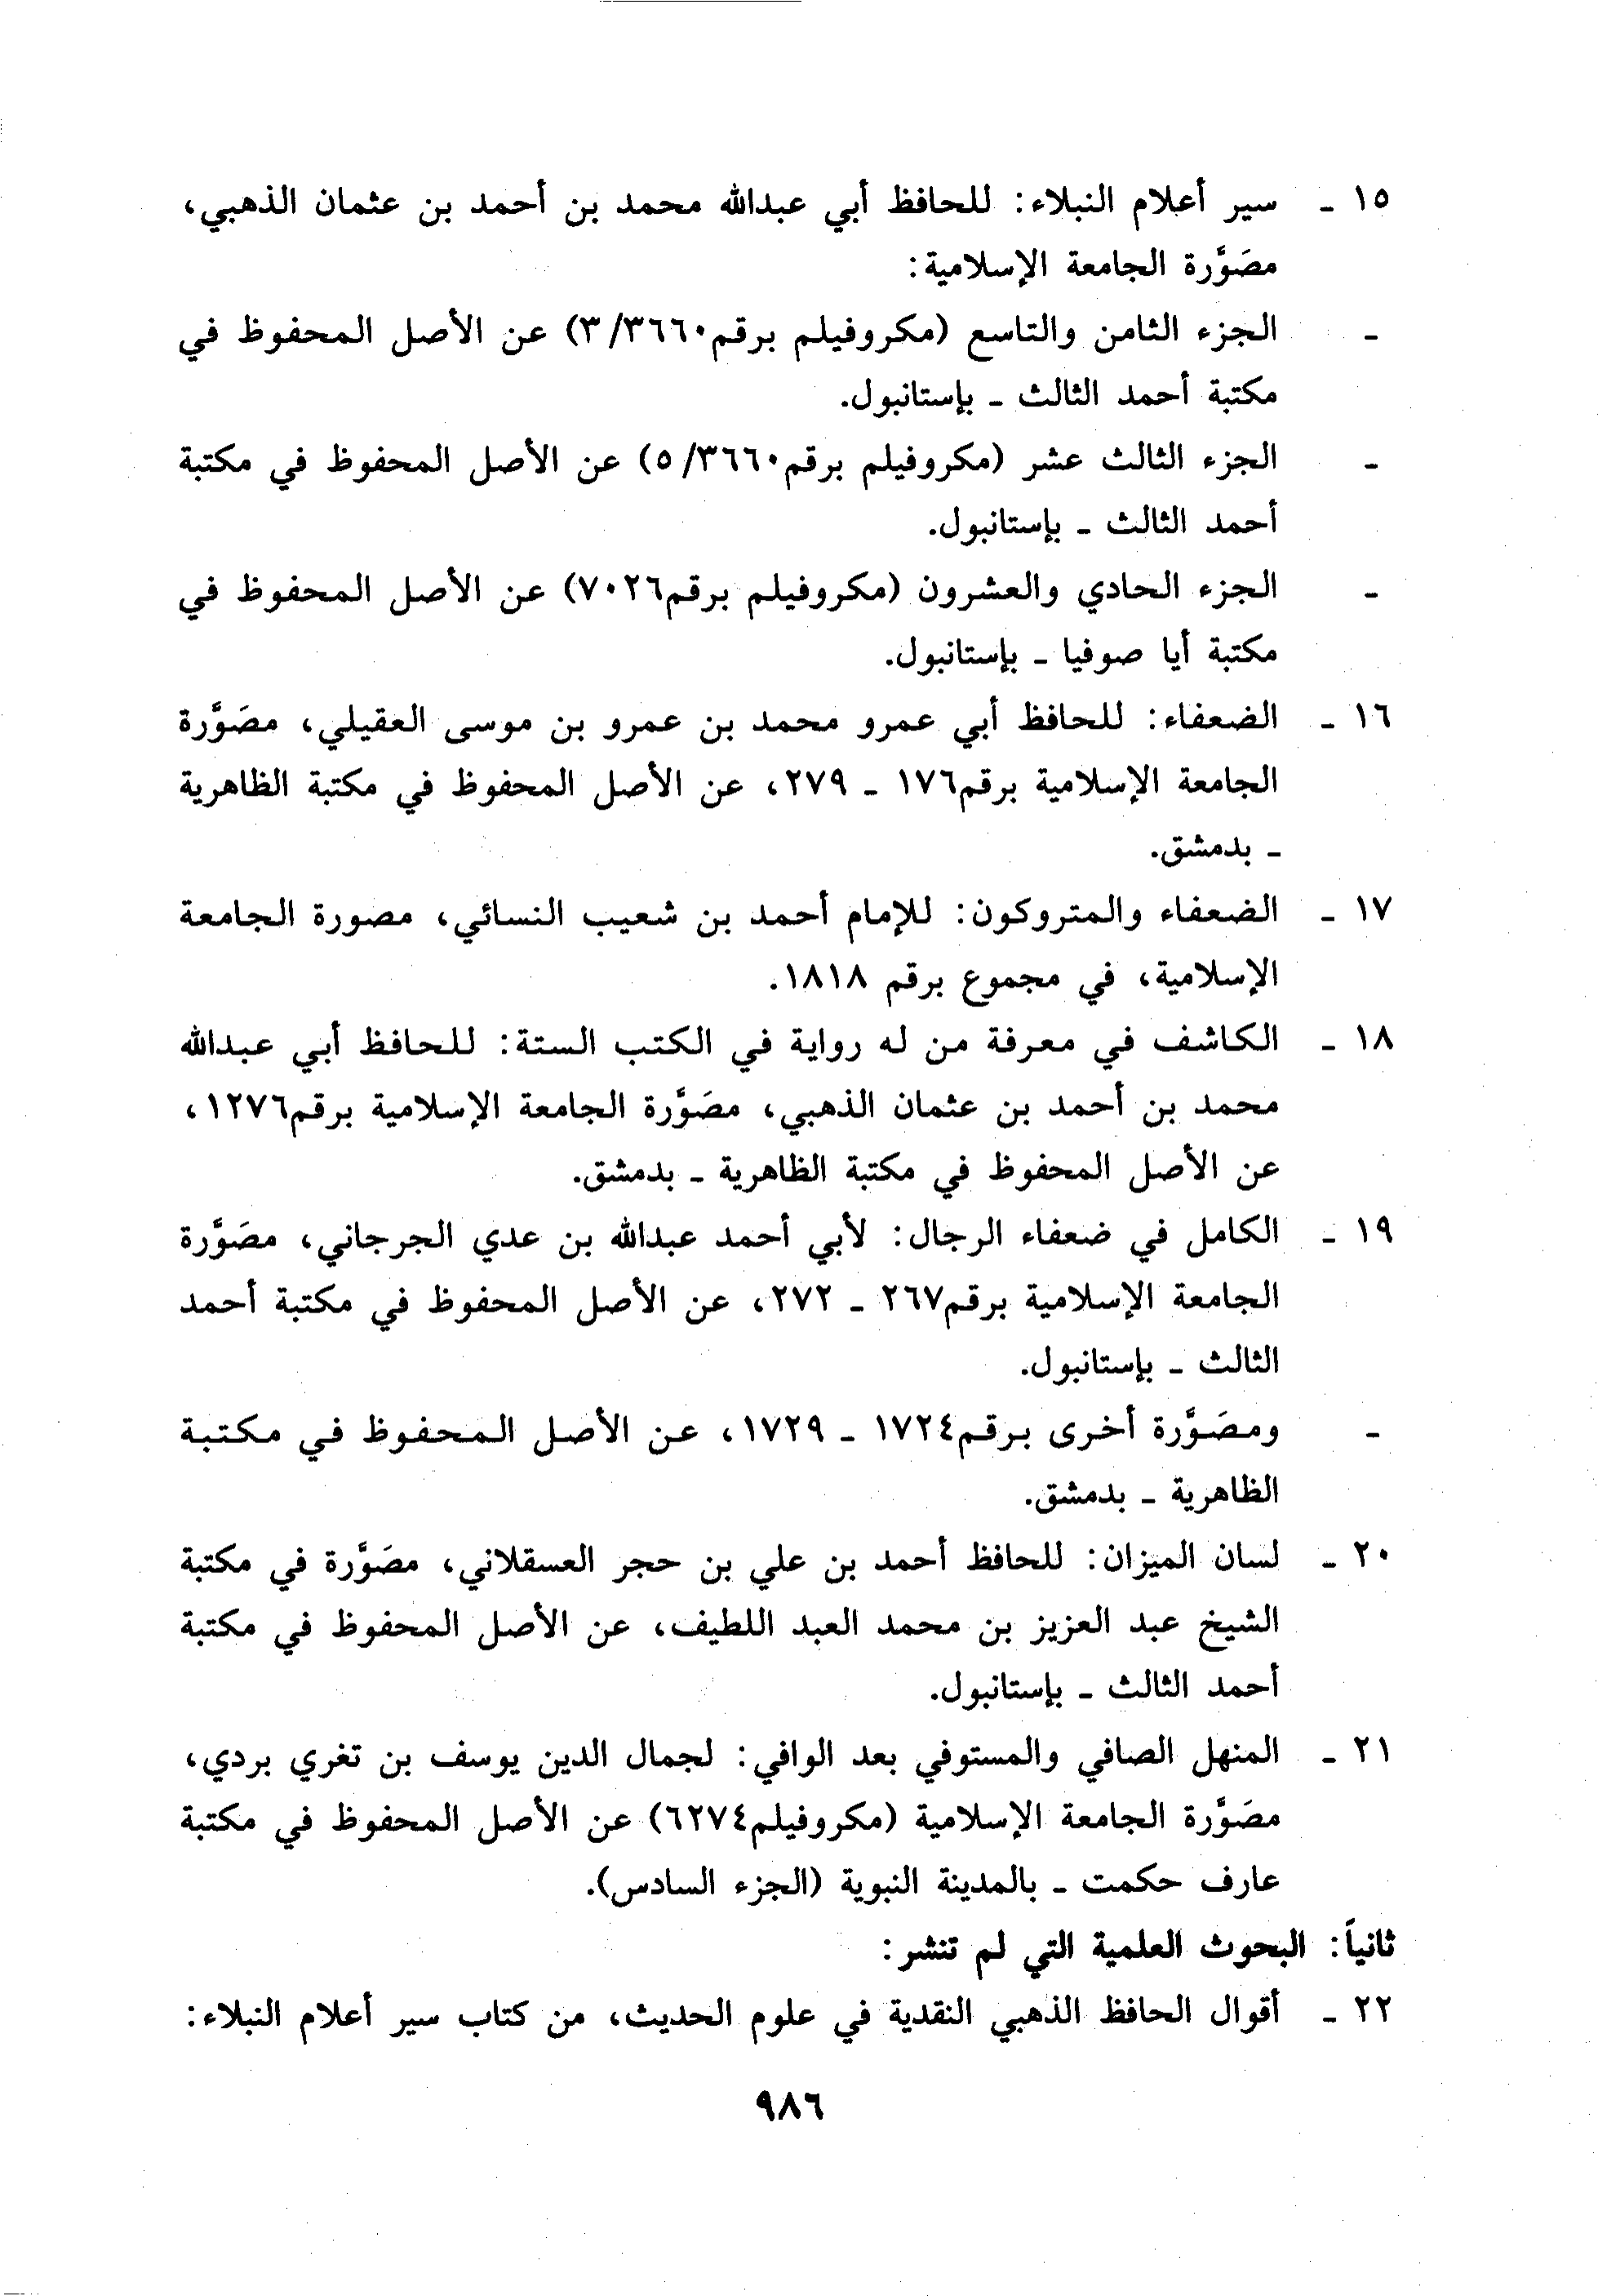 ١٥ ـ سير أعلام النبلاء: للحافظ أبي عبدالله محمد بن أحمد بن عثمان الذهبي،
مصَوَّرة الجامعة الإسلامية:
ـ الجزء الثامن والتاسع (مكروفيلم برقم٣/٣٦٦٠) عن الأصل المحفوظ في
مكتبة أحمد الثالث ـ بإستانبول.
ـ الجزء الثالث عشر (مكروفيلم برقم٥/٣٦٦٠) عن الأصل المحفوظ في مكتبة
أحمد الثالث ـ بإستانبول.
ـ الجزء الحادي والعشرون (مكروفيلم برقم٧٠٢٦) عن الأصل المحفوظ في
مكتبة أيا صوفيا ـ بإستانبول.
١٦ ـ الضعفاء: للحافظ أبي عمرو محمد بن عمرو بن موسى العقيلي، مصَوَّرة
الجامعة الإسلامية برقم١٧٦ ـ ٢٧٩، عن الأصل المحفوظ في مكتبة الظاهرية
ـ بدمشق.
١٧ ـ الضعفاء والمتروكون: للإمام أحمد بن شعيب النسائي، مصورة الجامعة
الإسلامية، في مجموع برقم ١٨١٨.
١٨ ـ الكاشف في معرفة من له رواية في الكتب الستة: للحافظ أبي عبدالله
محمد بن أحمد بن عثمان الذهبي، مصَوَّرة الجامعة الإسلامية برقم١٢٧٦،
عن الأصل المحفوظ في مكتبة الظاهرية ـ بدمشق.
١٩ ـ الكامل في ضعفاء الرجال: لأبي أحمد عبدالله بن عدي الجرجاني، مصَوَّرة
الجامعة الإسلامية برقم٢٦٧ ـ ٢٧٢، عن الأصل المحفوظ في مكتبة أحمد
الثالث ـ بإستانبول.
ـ ومصَوَّرة أخرى برقم١٧٢٤ ـ ١٧٢٩، عن الأصل المحفوظ في مكتبة
الظاهرية ـ بدمشق.
٢٠ ـ لسان الميزان: للحافظ أحمد بن علي بن حجر العسقلاني، مصَوَّرة في مكتبة
الشيخ عبد العزيز بن محمد العبد اللطيف، عن الأصل المحفوظ في مكتبة
أحمد الثالث ـ بإستانبول.
٢١ ـ المنهل الصافي والمستوفي بعد الوافي: لجمال الدين يوسف بن تغري بردي،
مصَوَّرة الجامعة الإسلامية (مكروفيلم٦٢٧٤) عن الأصل المحفوظ في مكتبة
عارف حكمت ـ بالمدينة النبوية (الجزء السادس).
ثانياً: البحوث العلمية التي لم تنشر:
٢٢ ـ أقوال الحافظ الذهبي النقدية في علوم الحديث، من كتاب سير أعلام النبلاء:
٩٨٦